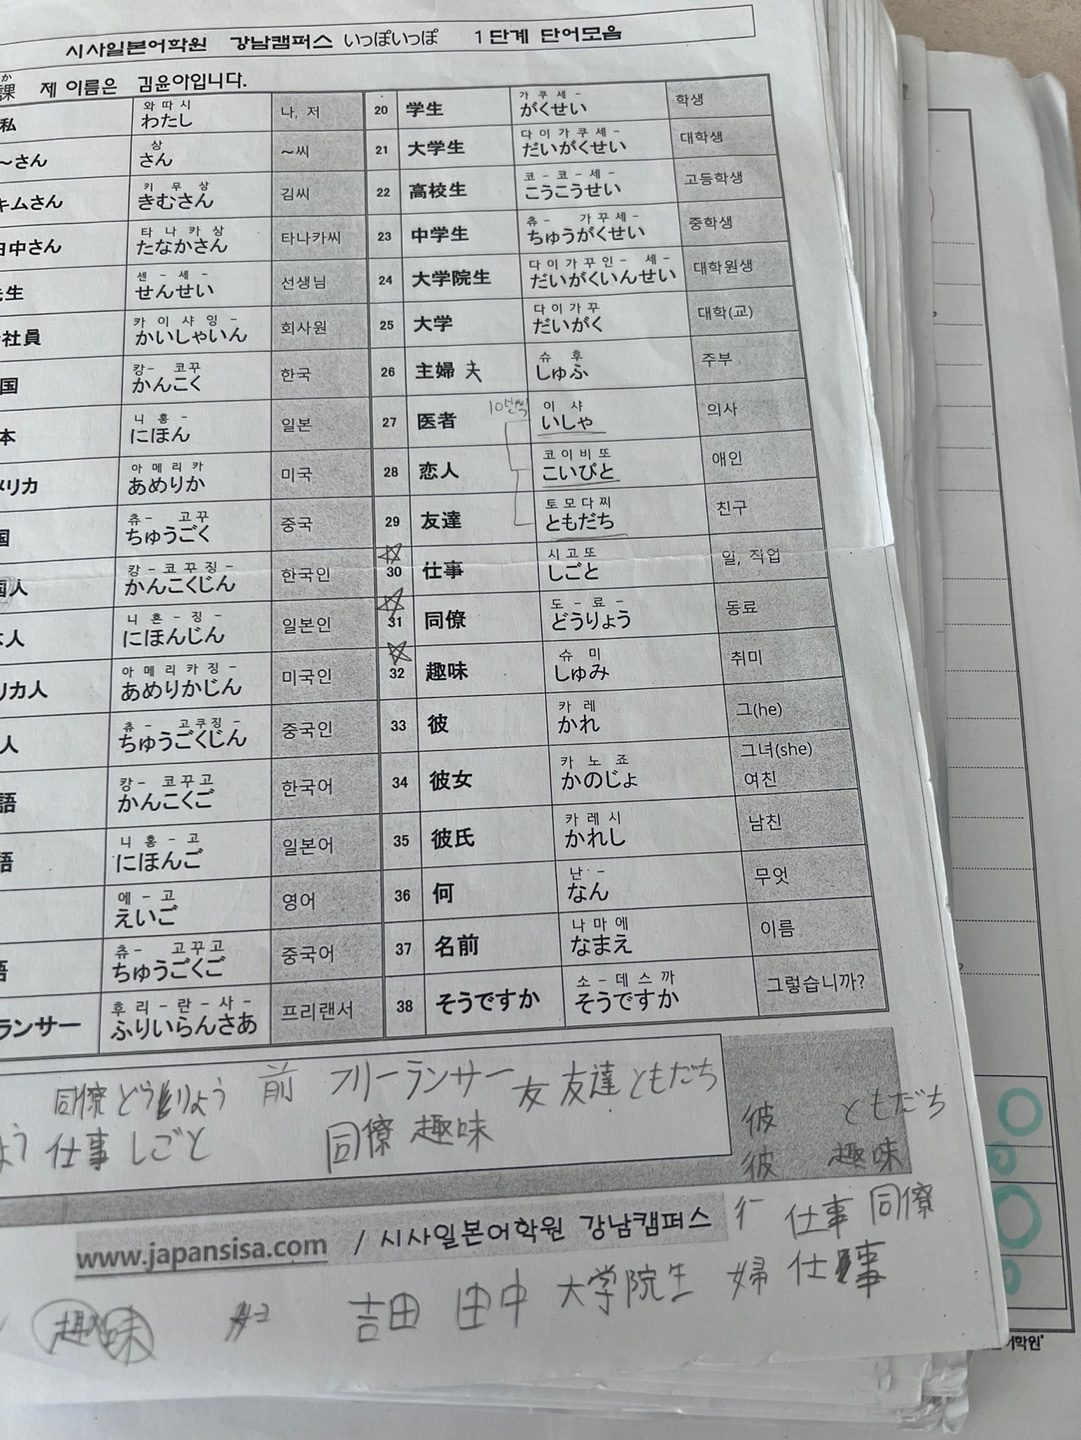 시사일본어학원 강남캠퍼스 いっぽいっぽ 1단계 단어모음
課 제 이름은 김윤아입니다.
か
私 わたし 와따시 나, 저
～さん さん 상 ~씨
キムさん きむさん 키무상 김씨
田中さん たなかさん 타나카상 타나카씨
生 せんせい 센-세- 선생님
社員 かいしゃいん 카이샤잉- 회사원
国 かんこく 캉-코꾸 한국
本 にほん 니홍- 일본
メリカ あめりか 아메리카 미국
国 ちゅうごく 츄-고꾸 중국
国人 かんこくじん 캉-코꾸징- 한국인
人 にほんじん 니혼-징- 일본인
リカ人 あめりかじん 아메리카징- 미국인
人 ちゅうごくじん 츄-고쿠징- 중국인
語 かんこくご 캉-코꾸고 한국어
語 にほんご 니홍-고 일본어
えいご 에-고 영어
語 ちゅうごくご 츄-고꾸고 중국어
ランサー ふりいらんさあ 후리-란-사- 프리랜서
20 学生 がくせい 가쿠세- 학생
21 大学生 だいがくせい 다이가쿠세- 대학생
22 高校生 こうこうせい 코-코-세- 고등학생
23 中学生 ちゅうがくせい 츄-가꾸세- 중학생
24 大学院生 だいがくいんせい 다이가꾸인-세- 대학원생
25 大学 だいがく 다이가꾸 대학(교)
26 主婦 夫 しゅふ 슈후 주부
27 医者 10번씩 いしゃ 이샤 의사
28 恋人 こいびと 코이비또 애인
29 友達 ともだち 토모다찌 친구
30 仕事 しごと 시고또 일, 직업
31 同僚 どうりょう 도-료- 동료
32 趣味 しゅみ 슈미 취미
33 彼 かれ 카레 그(he)
34 彼女 かのじょ 카노죠 그녀(she) 여친
35 彼氏 かれし 카레시 남친
36 何 なん 난- 무엇
37 名前 なまえ 나마에 이름
38 そうですか そうですか 소-데스까 그렇습니까?
同僚 どうりょう 前 フリーランサー 友 友達 ともだち
よう 仕事 しごと 同僚 趣味
彼 ともだち
彼 趣味
www.japansisa.com / 시사일본어학원 강남캠퍼스 行 仕事 同僚
趣味 吉田 田中 大学院生 婦 仕事
어학원